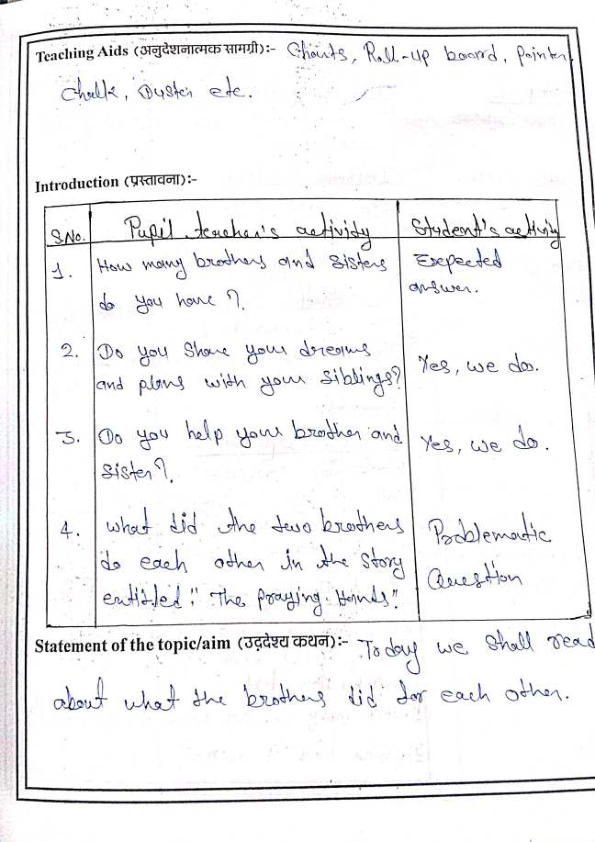 Teaching Aids (अनुदेशनात्मक सामग्री):- Charts, Roll-up board, pointer,
chalk, Duster etc.
Introduction (प्रस्तावना):-
S.No. Pupil teacher's activity Student's activity
1. How many brothers and sisters Expected
do you have?. answer.
2. Do you share your dreams
and plans with your siblings? Yes, we do.
3. Do you help your brother and Yes, we do.
sister?.
4. What did the two brothers Problematic
do each other in the story Question
entitled "The Praying Hands".
Statement of the topic/aim (उद्देश्य कथन):- Today we shall read
about what the brothers did for each other.